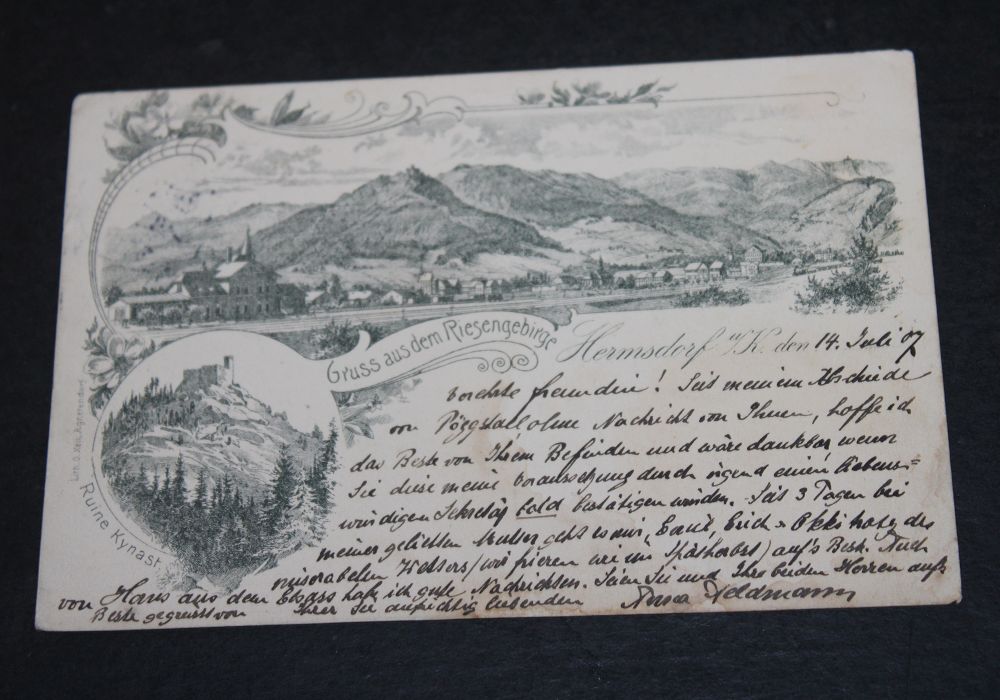 Gruss aus dem Riesengebirge
Hermsdorf u/K. den 14. Juli 07
Ruine Kynast
verehrte Freundin! Seit meinem Abschiede
von Pöggstall ohne Nachricht von Ihnen, hoffe ich
das Beste von Ihrem Befinden und wäre dankbar wenn
Sie diese meine Voraussetzung durch irgend einen liebens=
würdigen Sekretär bald bestätigen würden. Seit 3 Tagen bei
meiner geliebten Mutter geht es mir, Erich trotz des
miserabelen Wetters (wir frieren wie im Spätherbst) auf's Beste. Auch
von Hans aus dem Elsass habe ich gute Nachrichten. Seien Sie und Ihre beiden Herren aufs
Beste gegrüsst von Ihrer Sie aufrichtig liebenden Feldmann